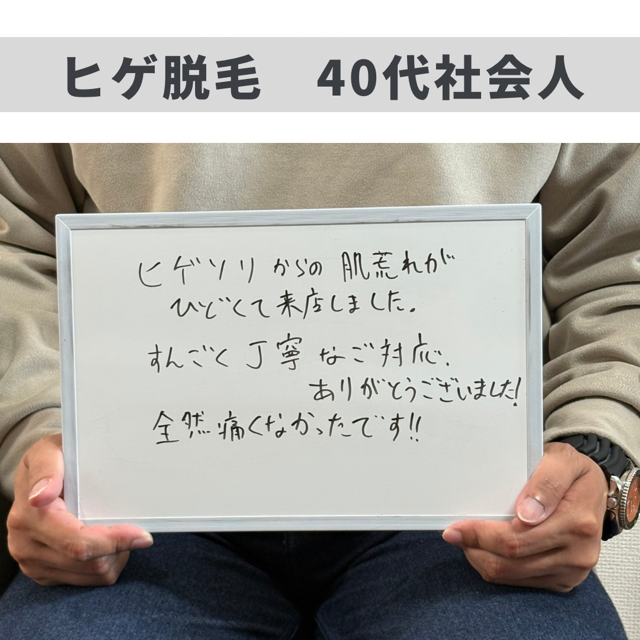 ヒゲ脱毛　40代社会人
ヒゲソリからの肌荒れが
ひどくて来店しました。
すんごく丁寧なご対応、
ありがとうございました!
全然痛くなかったです!!